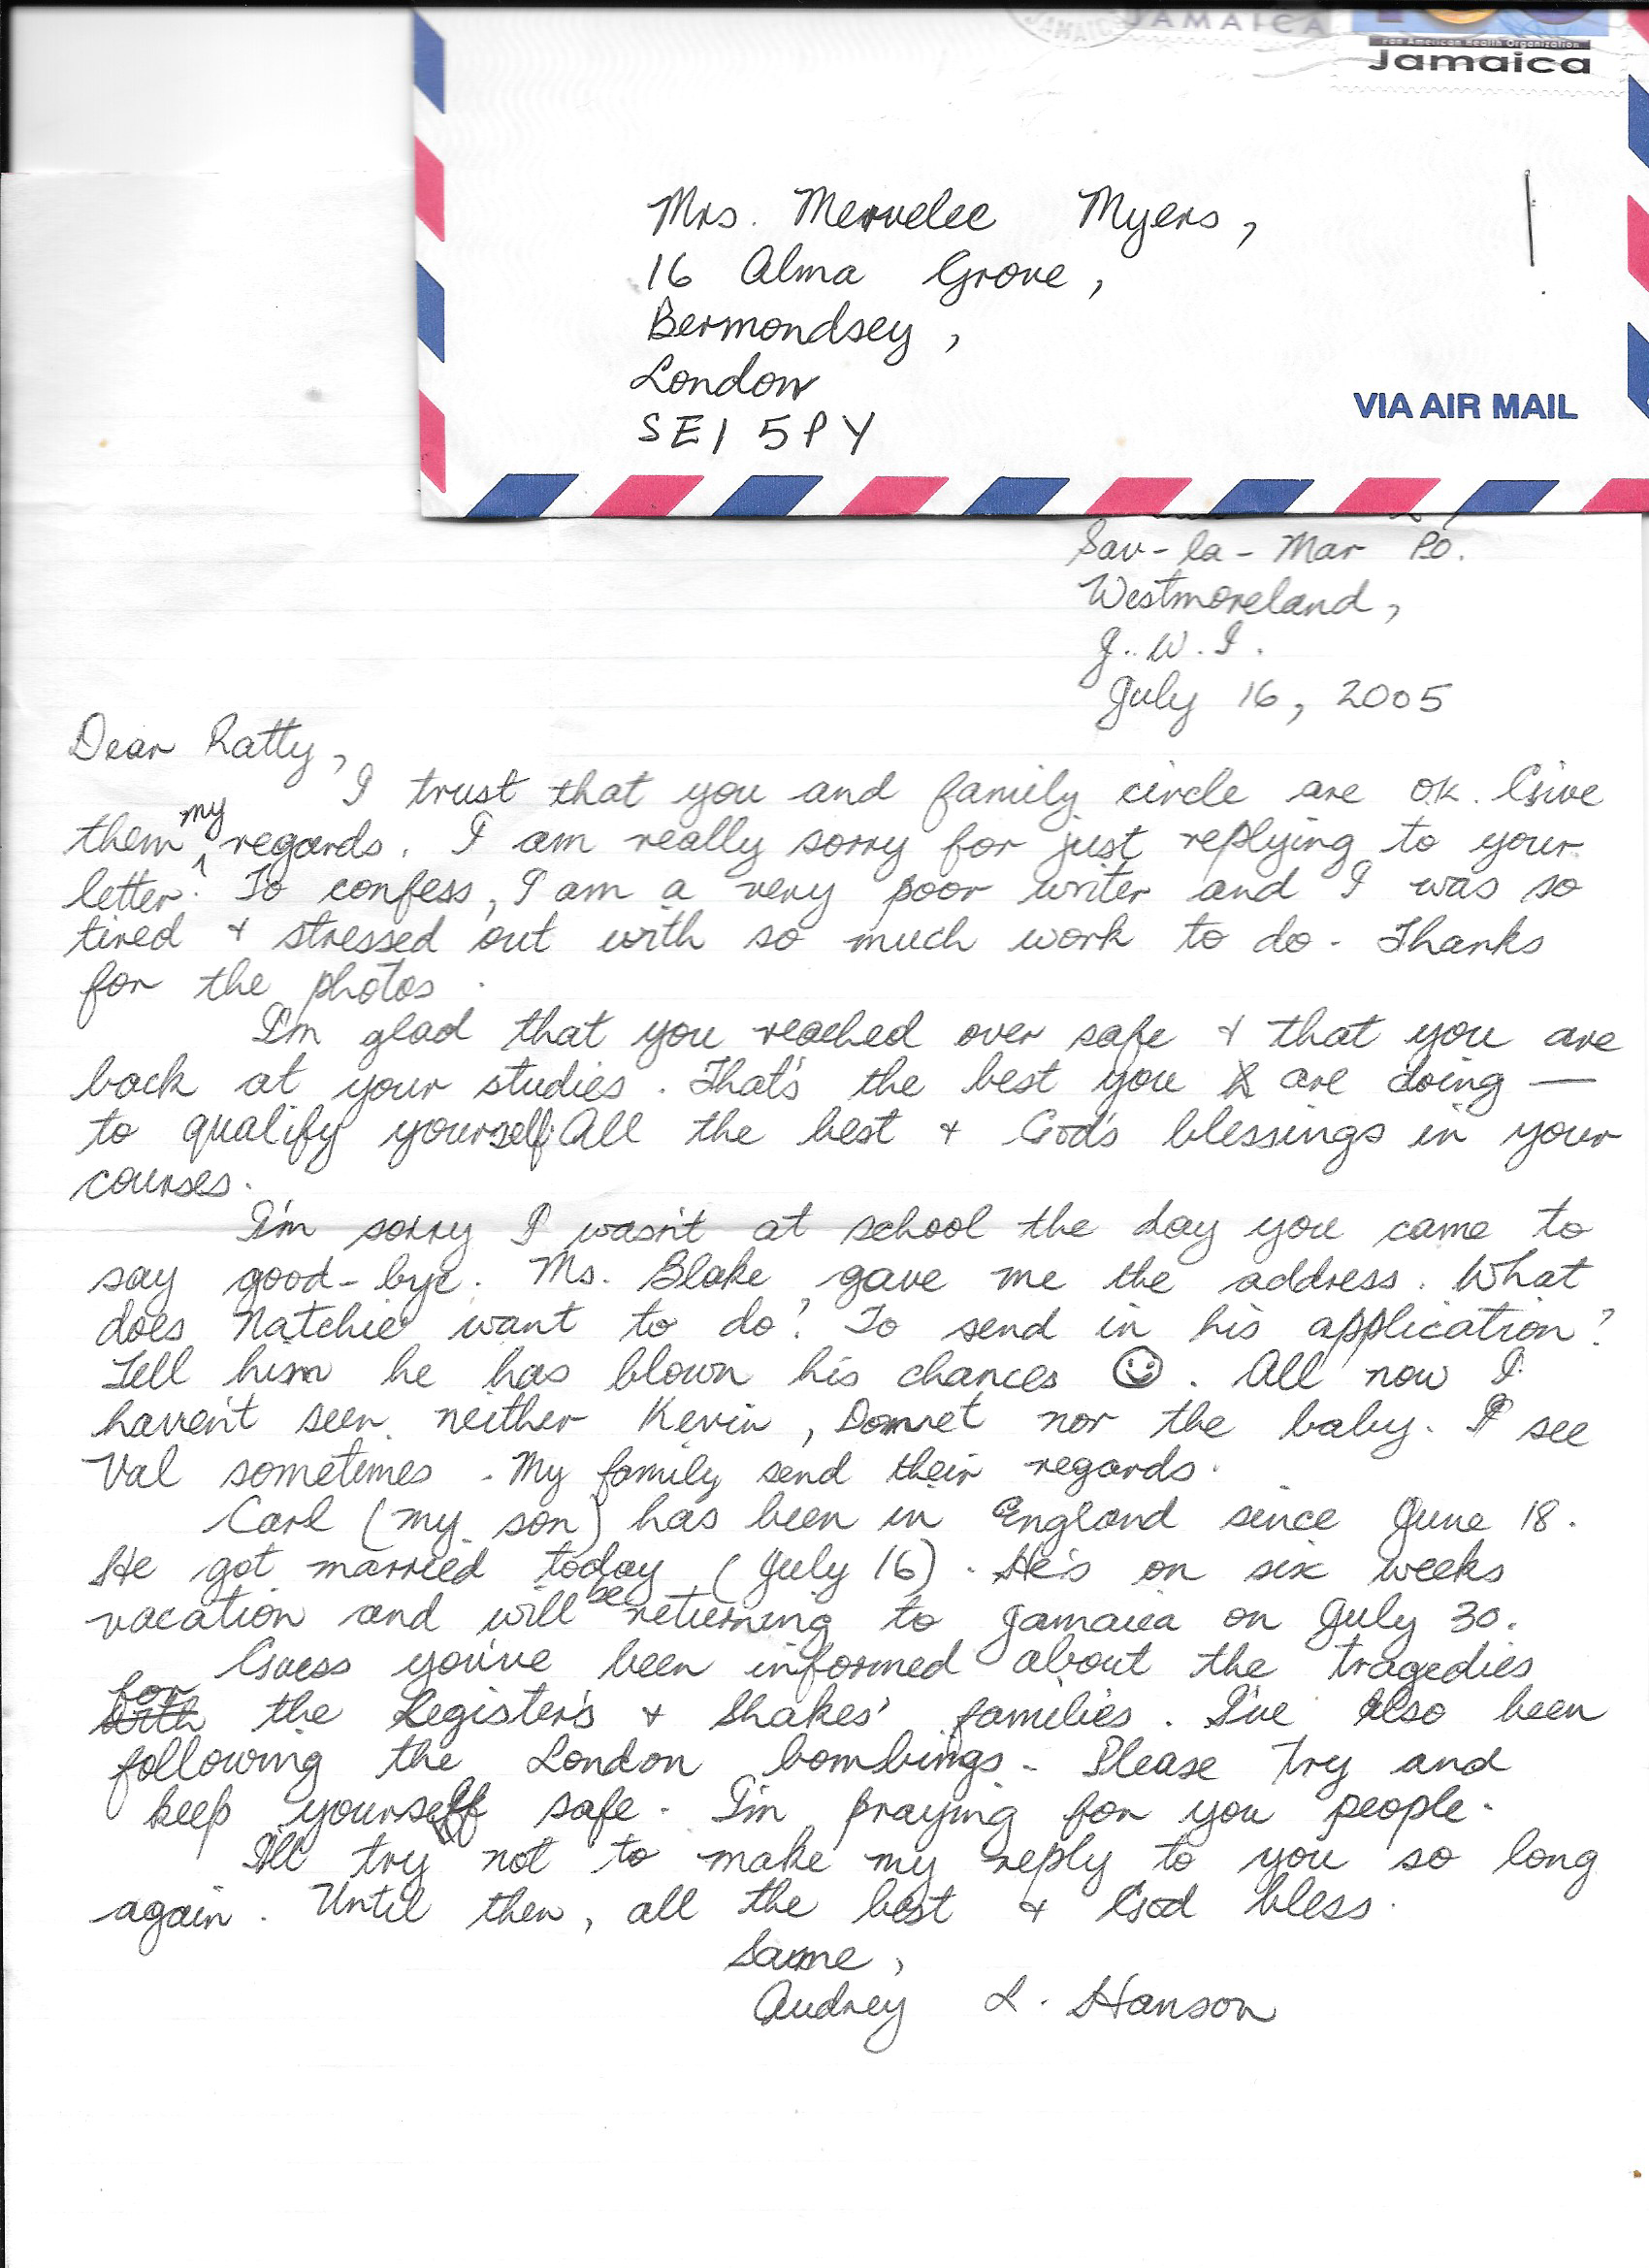 JAMAICA
JAMAICA
Pan American Health Organization
Jamaica
Mrs. Mervelee Myers,
16 Alma Grove,
Bermondsey,
London
SE1 5PY
VIA AIR MAIL
Sav-la-Mar P.O.
Westmoreland,
J.W.I.
July 16, 2005
Dear Ratty,
I trust that you and family circle are ok. Give
them my regards. I am really sorry for just replying to your
letter. To confess, I am a very poor writer and I was so
tired & stressed out with so much work to do. Thanks
for the photos.
I'm glad that you reached over safe & that you are
back at your studies. That's the best you are doing —
to qualify yourself. All the best & God's blessings in your
courses.
I'm sorry I wasn't at school the day you came to
say good-bye. Ms. Blake gave me the address. What
does Natchie want to do? To send in his application?
Tell him he has blown his chances ☺. All now I
haven't seen neither Kevin, nor the baby. I see
Val sometimes. My family send their regards.
Carl (my son) has been in England since June 18.
He got married today (July 16). He's on six weeks
vacation and will be returning to Jamaica on July 30.
Guess you've been informed about the tragedies
with for the Legister's & Shakes' families. I've also been
following the London bombings. Please try and
keep yourself safe. I'm praying for you people.
I'll try not to make my reply to you so long
again. Until then, all the best & God bless.
Same,
Audrey L. Hanson